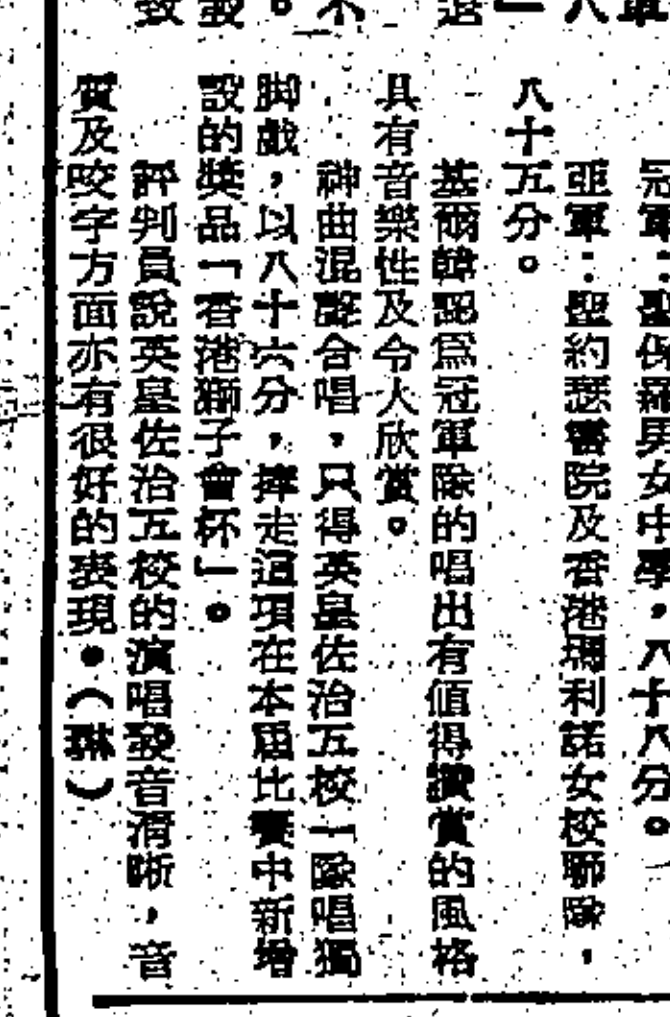 冠軍：聖保羅男女中學，八十八分。
亞軍：聖約瑟書院及香港瑪利諾女校聯隊，
八十五分。
基爾韓認爲冠軍隊的唱出有值得讚賞的風格
具有音樂性及令人欣賞。
神曲混聲合唱，只得英皇佐治五校一隊唱獨
脚戲，以八十六分，捧走這項在本屆比賽中新增
設的獎品「香港獅子會杯」。
評判員說英皇佐治五校的演唱發音清晰，音
質及咬字方面亦有很好的表現。（琳）